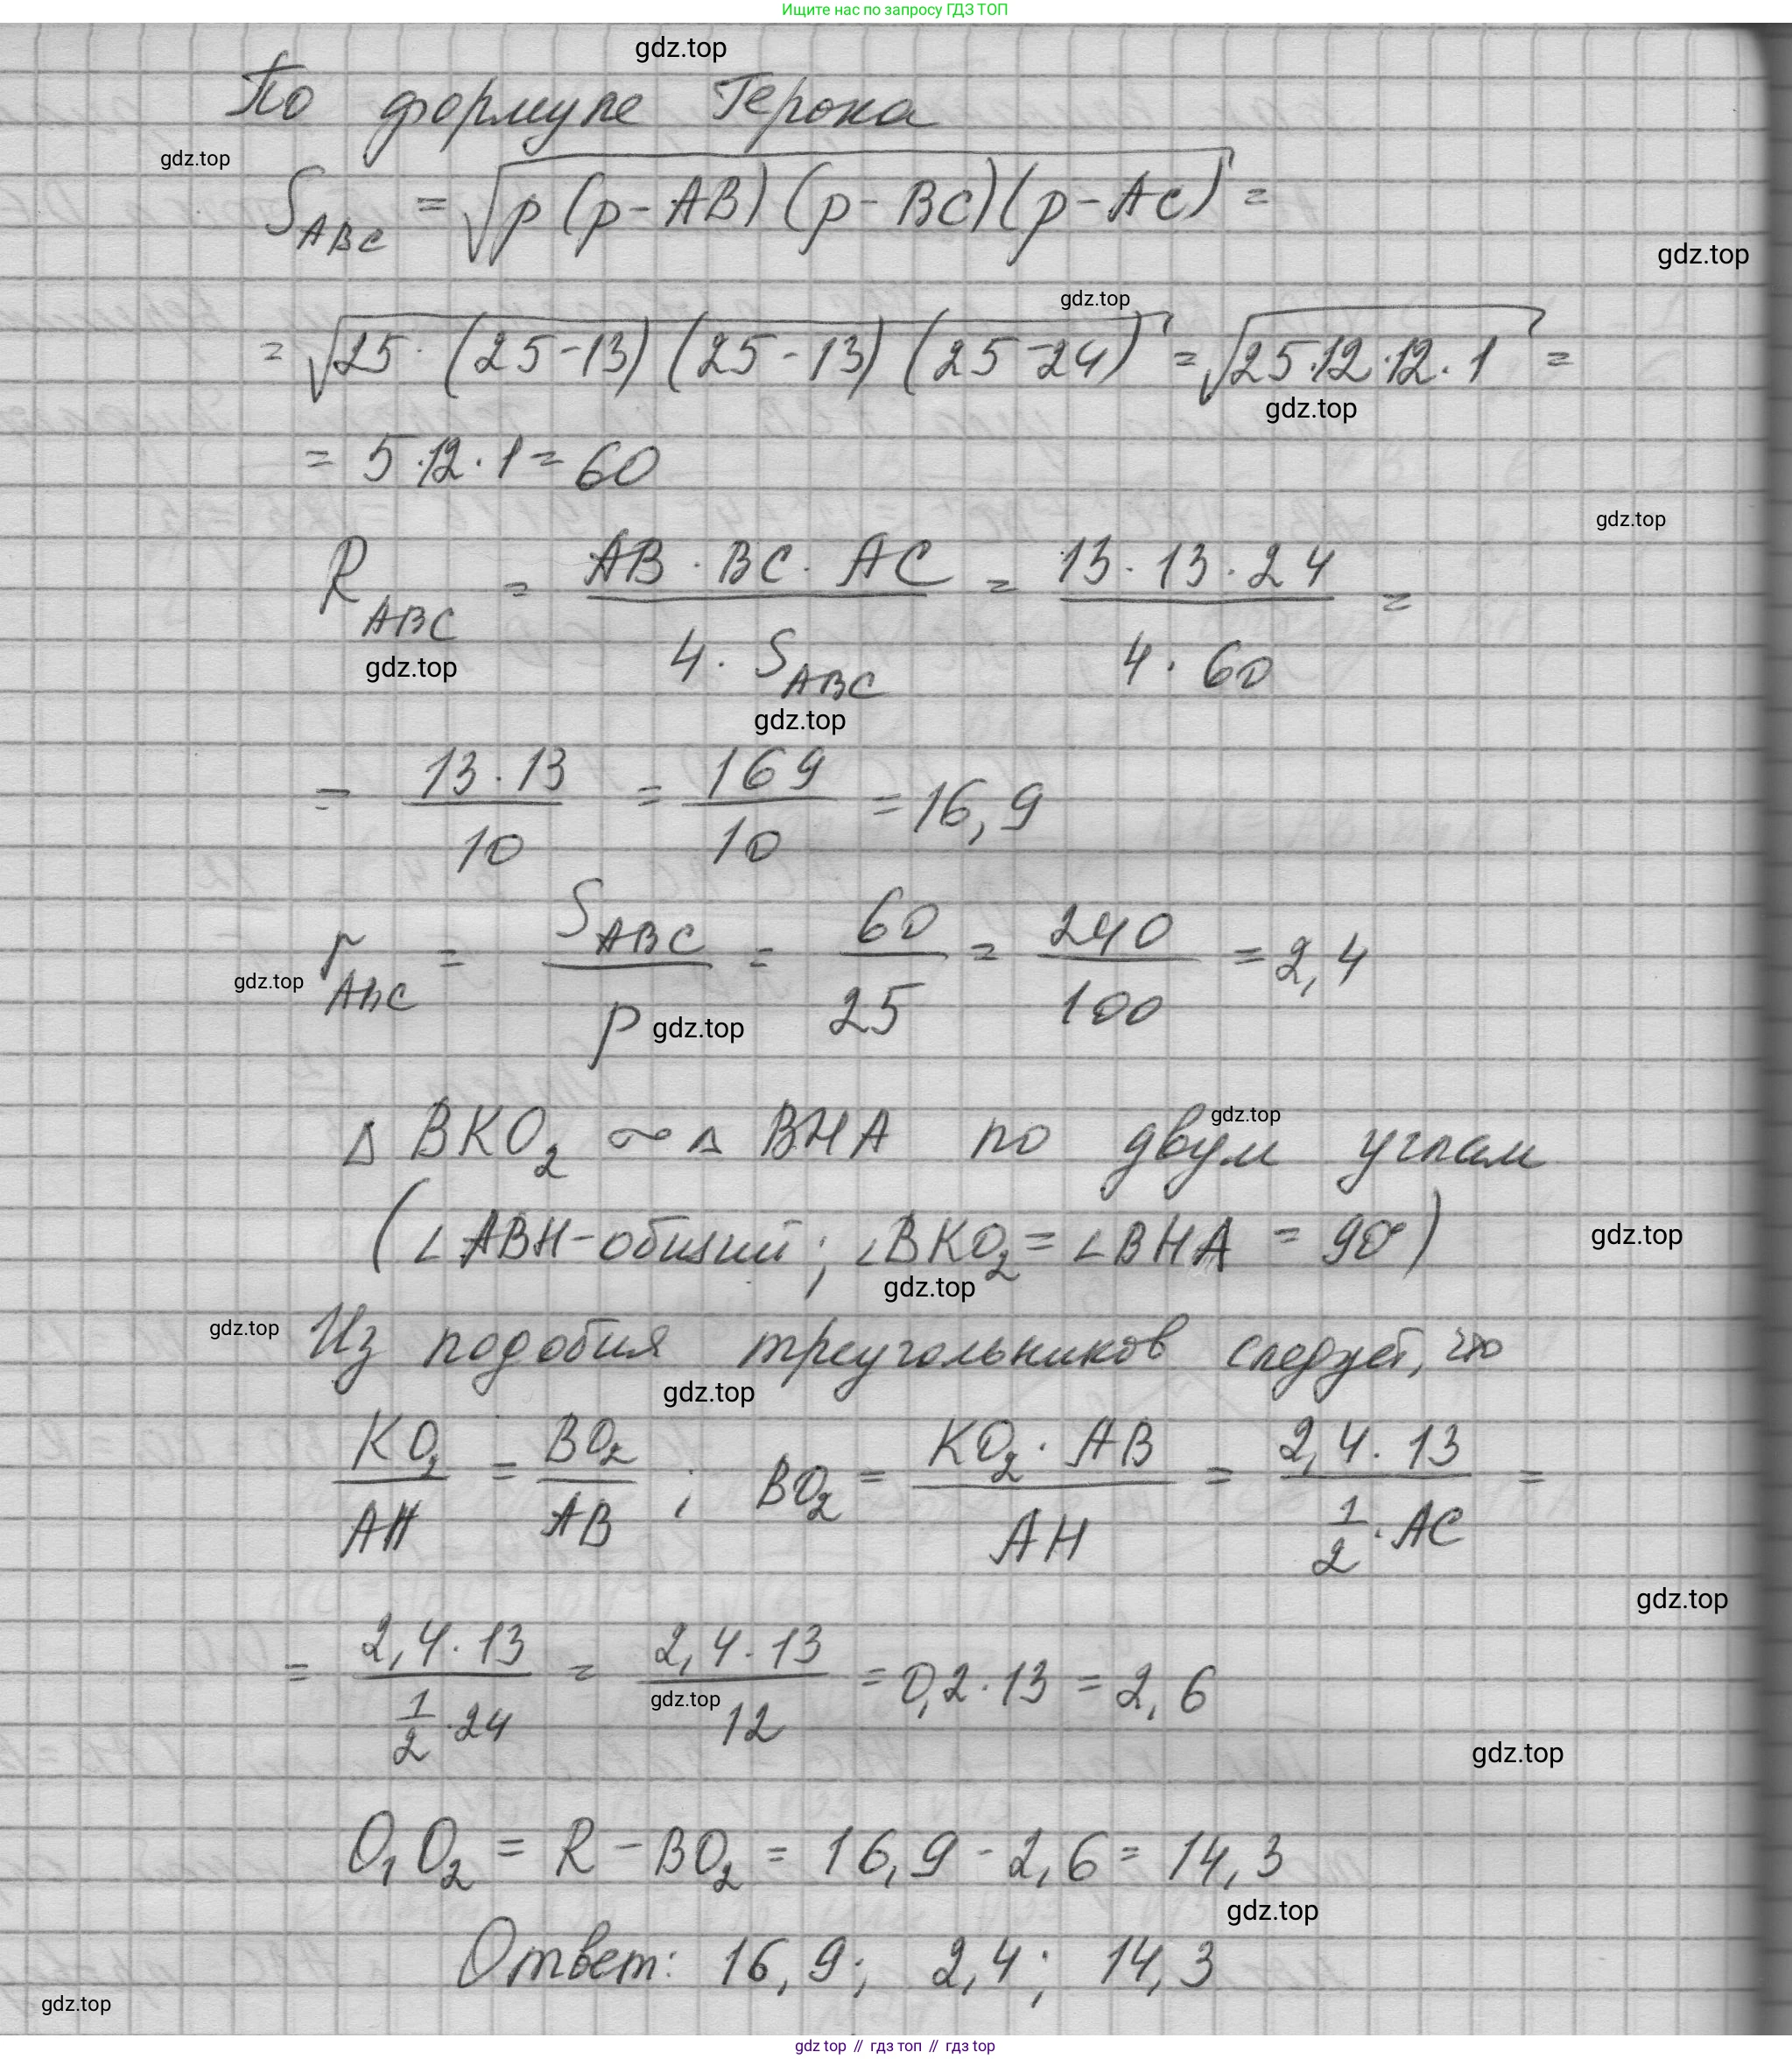 Ищите нас по запросу ГДЗ ТОП
gdz.top
По формуле Герона
gdz.top
S_ABC = √(p (p - AB) (p - BC)(p - AC)) =
gdz.top
gdz.top
= √(25 · (25 - 13) (25 - 13) (25 - 24)) = √(25·12·12·1) =
gdz.top
= 5·12·1 = 60
gdz.top
R_ABC = (AB · BC · AC) / (4 · S_ABC) = (13 · 13 · 24) / (4 · 60) =
gdz.top
gdz.top
= (13 · 13) / 10 = 169 / 10 = 16,9
r_ABC = S_ABC / p = 60 / 25 = 240 / 100 = 2,4
gdz.top
gdz.top
gdz.top
Δ BKO₂ ~ Δ BHA по двум углам
(∠ABH - общий; ∠BKO₂ = ∠BHA = 90°)
gdz.top
gdz.top
gdz.top
Из подобия треугольников следует, что
gdz.top
KO₂ / AH = BO₂ / AB ; BO₂ = (KO₂ · AB) / AH = (2,4 · 13) / (1/2 · AC) =
gdz.top
= (2,4 · 13) / (1/2 · 24) = (2,4 · 13) / 12 = 0,2 · 13 = 2,6
gdz.top
gdz.top
O₁O₂ = R - BO₂ = 16,9 - 2,6 = 14,3
gdz.top
Ответ: 16,9; 2,4; 14,3
gdz.top
gdz top // гдз топ // гдз top